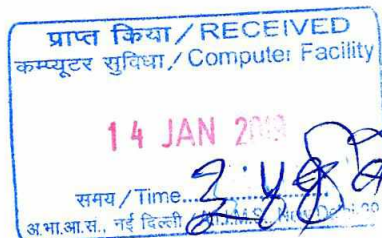 प्राप्त किया / RECEIVED
कम्प्यूटर सुविधा / Computer Facility
14 JAN
समय / Time
अ.भा.आ.सं., नई दिल्ली / A.I.I.M.S., New Delhi-29